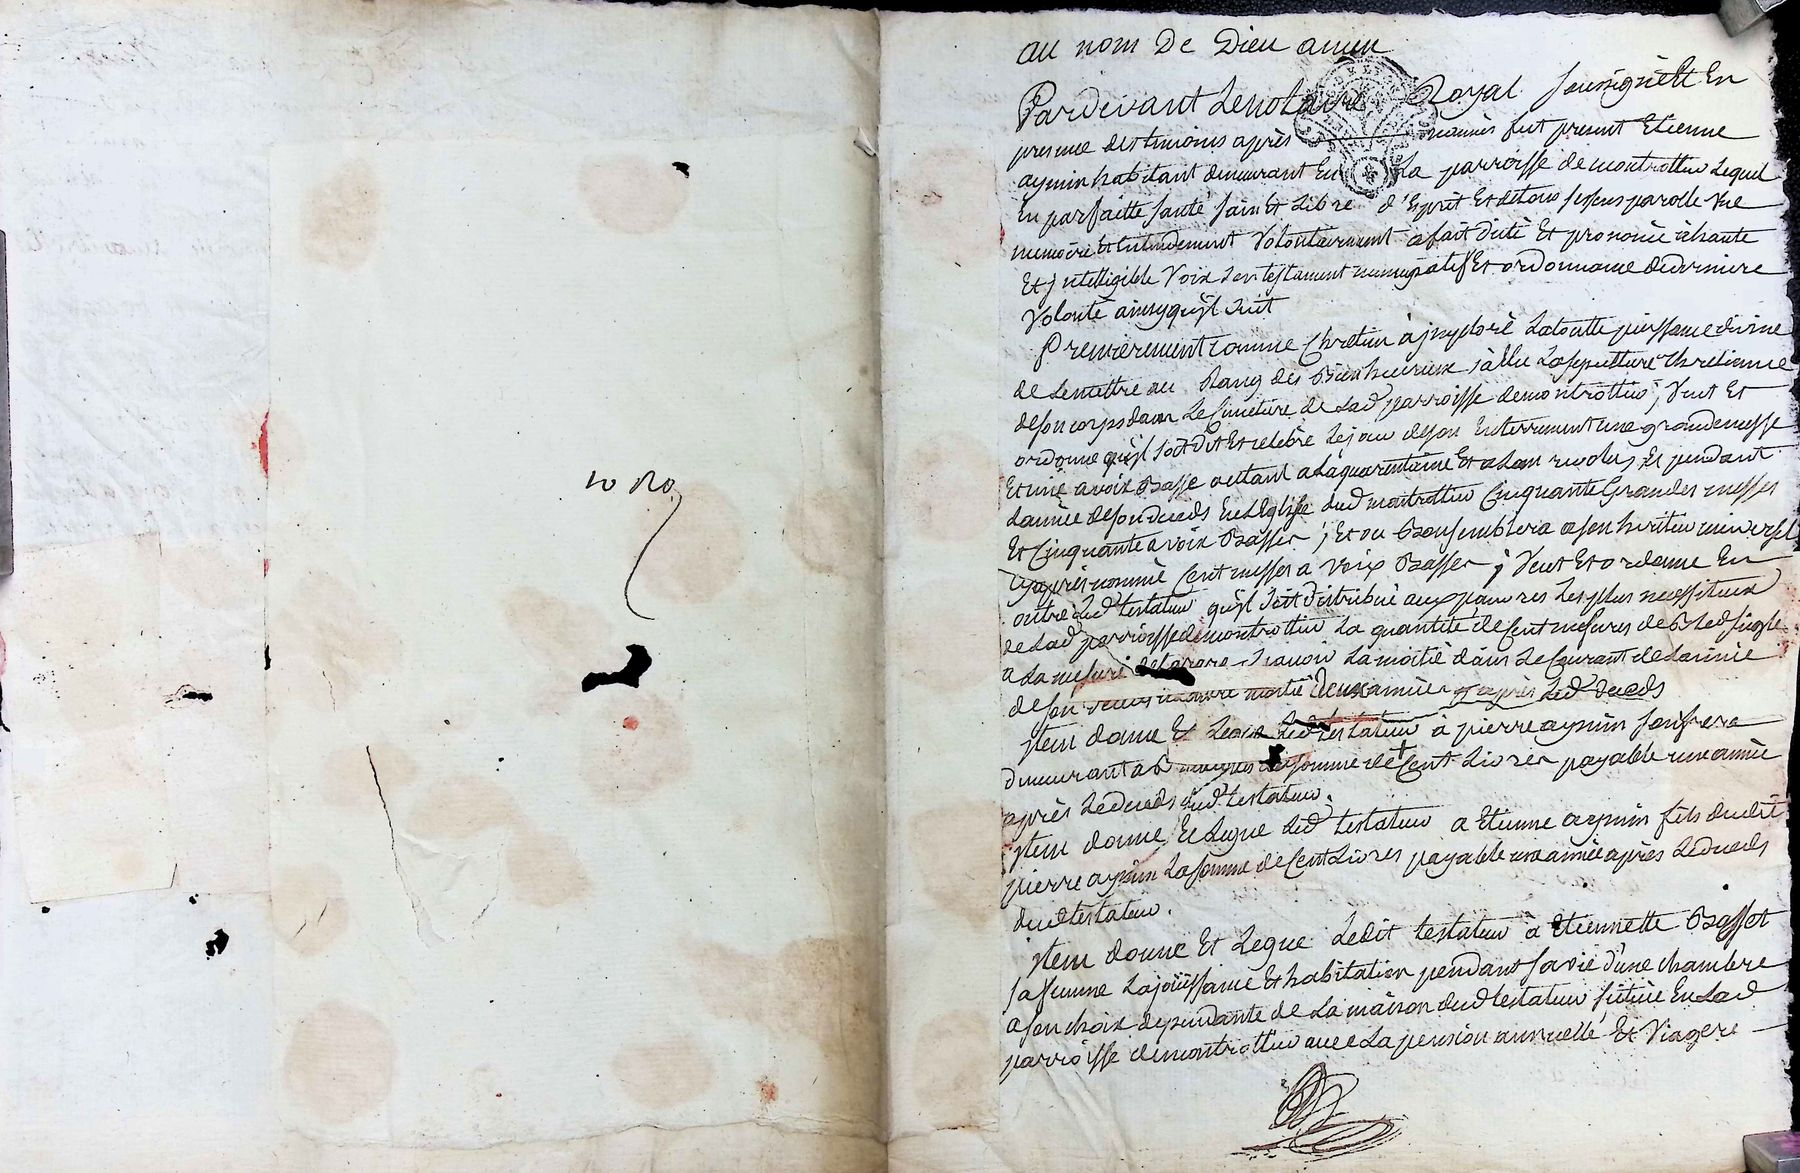 au nom De Dieu amen
Pardevant Le notaire Royal soussigné Et En
presence des temoins après nommés fut present Etienne
aymin habitant demeurant En La parroisse de montrottier Lequel
En parfaitte santé sain Et Libre d'Esprit Et de tous ses sens parolle vue
memoire Et Entendement volontairement a fait dicté Et prononcé à haute
Et jntelligible voix son testament nuncupatif Et ordonnance de derniere
volonté ainsy qu'jl suit
Premierement comme Chretien à jmploré La toutte puissance divine
de Le mettre au Rang des Bienheureux, à Elu La sepulture Chretienne
de son corps dans Le Cimetiere de Lad parroisse de montrottier; veut Et
ordonne qu'jl soit dit Et celebré Le jour de son Enterrement une grande messe
Et une a voix Basse autant a La quarentaine Et a L'an revolu, Et pendant
L'année de son deceds En L'Eglise dud montrottier Cinquante Grandes messes
Et Cinquante a voix Basses; Et ou Bon semblera a son heritier universel
cy après nommé Cent messes a voix Basses; Veut Et ordonne En
outre Led testateur qu'jl soit distribué aux pauvres Les plus necessiteux
de Lad parroisse de montrottier La quantité de Cent mesures de Bled seigle
a La mesure scavoir La moitié dans Le Courant de L'année
de son deceds moitié deux années après Led deceds
jtem donne Et Legue Led testateur à pierre aymin son frere
demeurant a somme de Cent Livres payable une année
après Le deceds dud testateur.
jtem donne Et Legue Led testateur a Etienne aymin fils dudit
pierre aymin La somme de Cent Livres payable une année après Le deceds
dud testateur.
jtem donne Et Legue Ledit testateur à Etiennette Basset
sa femme La jouissance Et habitation pendant sa vie d'une chambre
a son choix dependante de La maison dud testateur située En Lad
parroisse de montrottier avec La pension annuelle Et Viagere